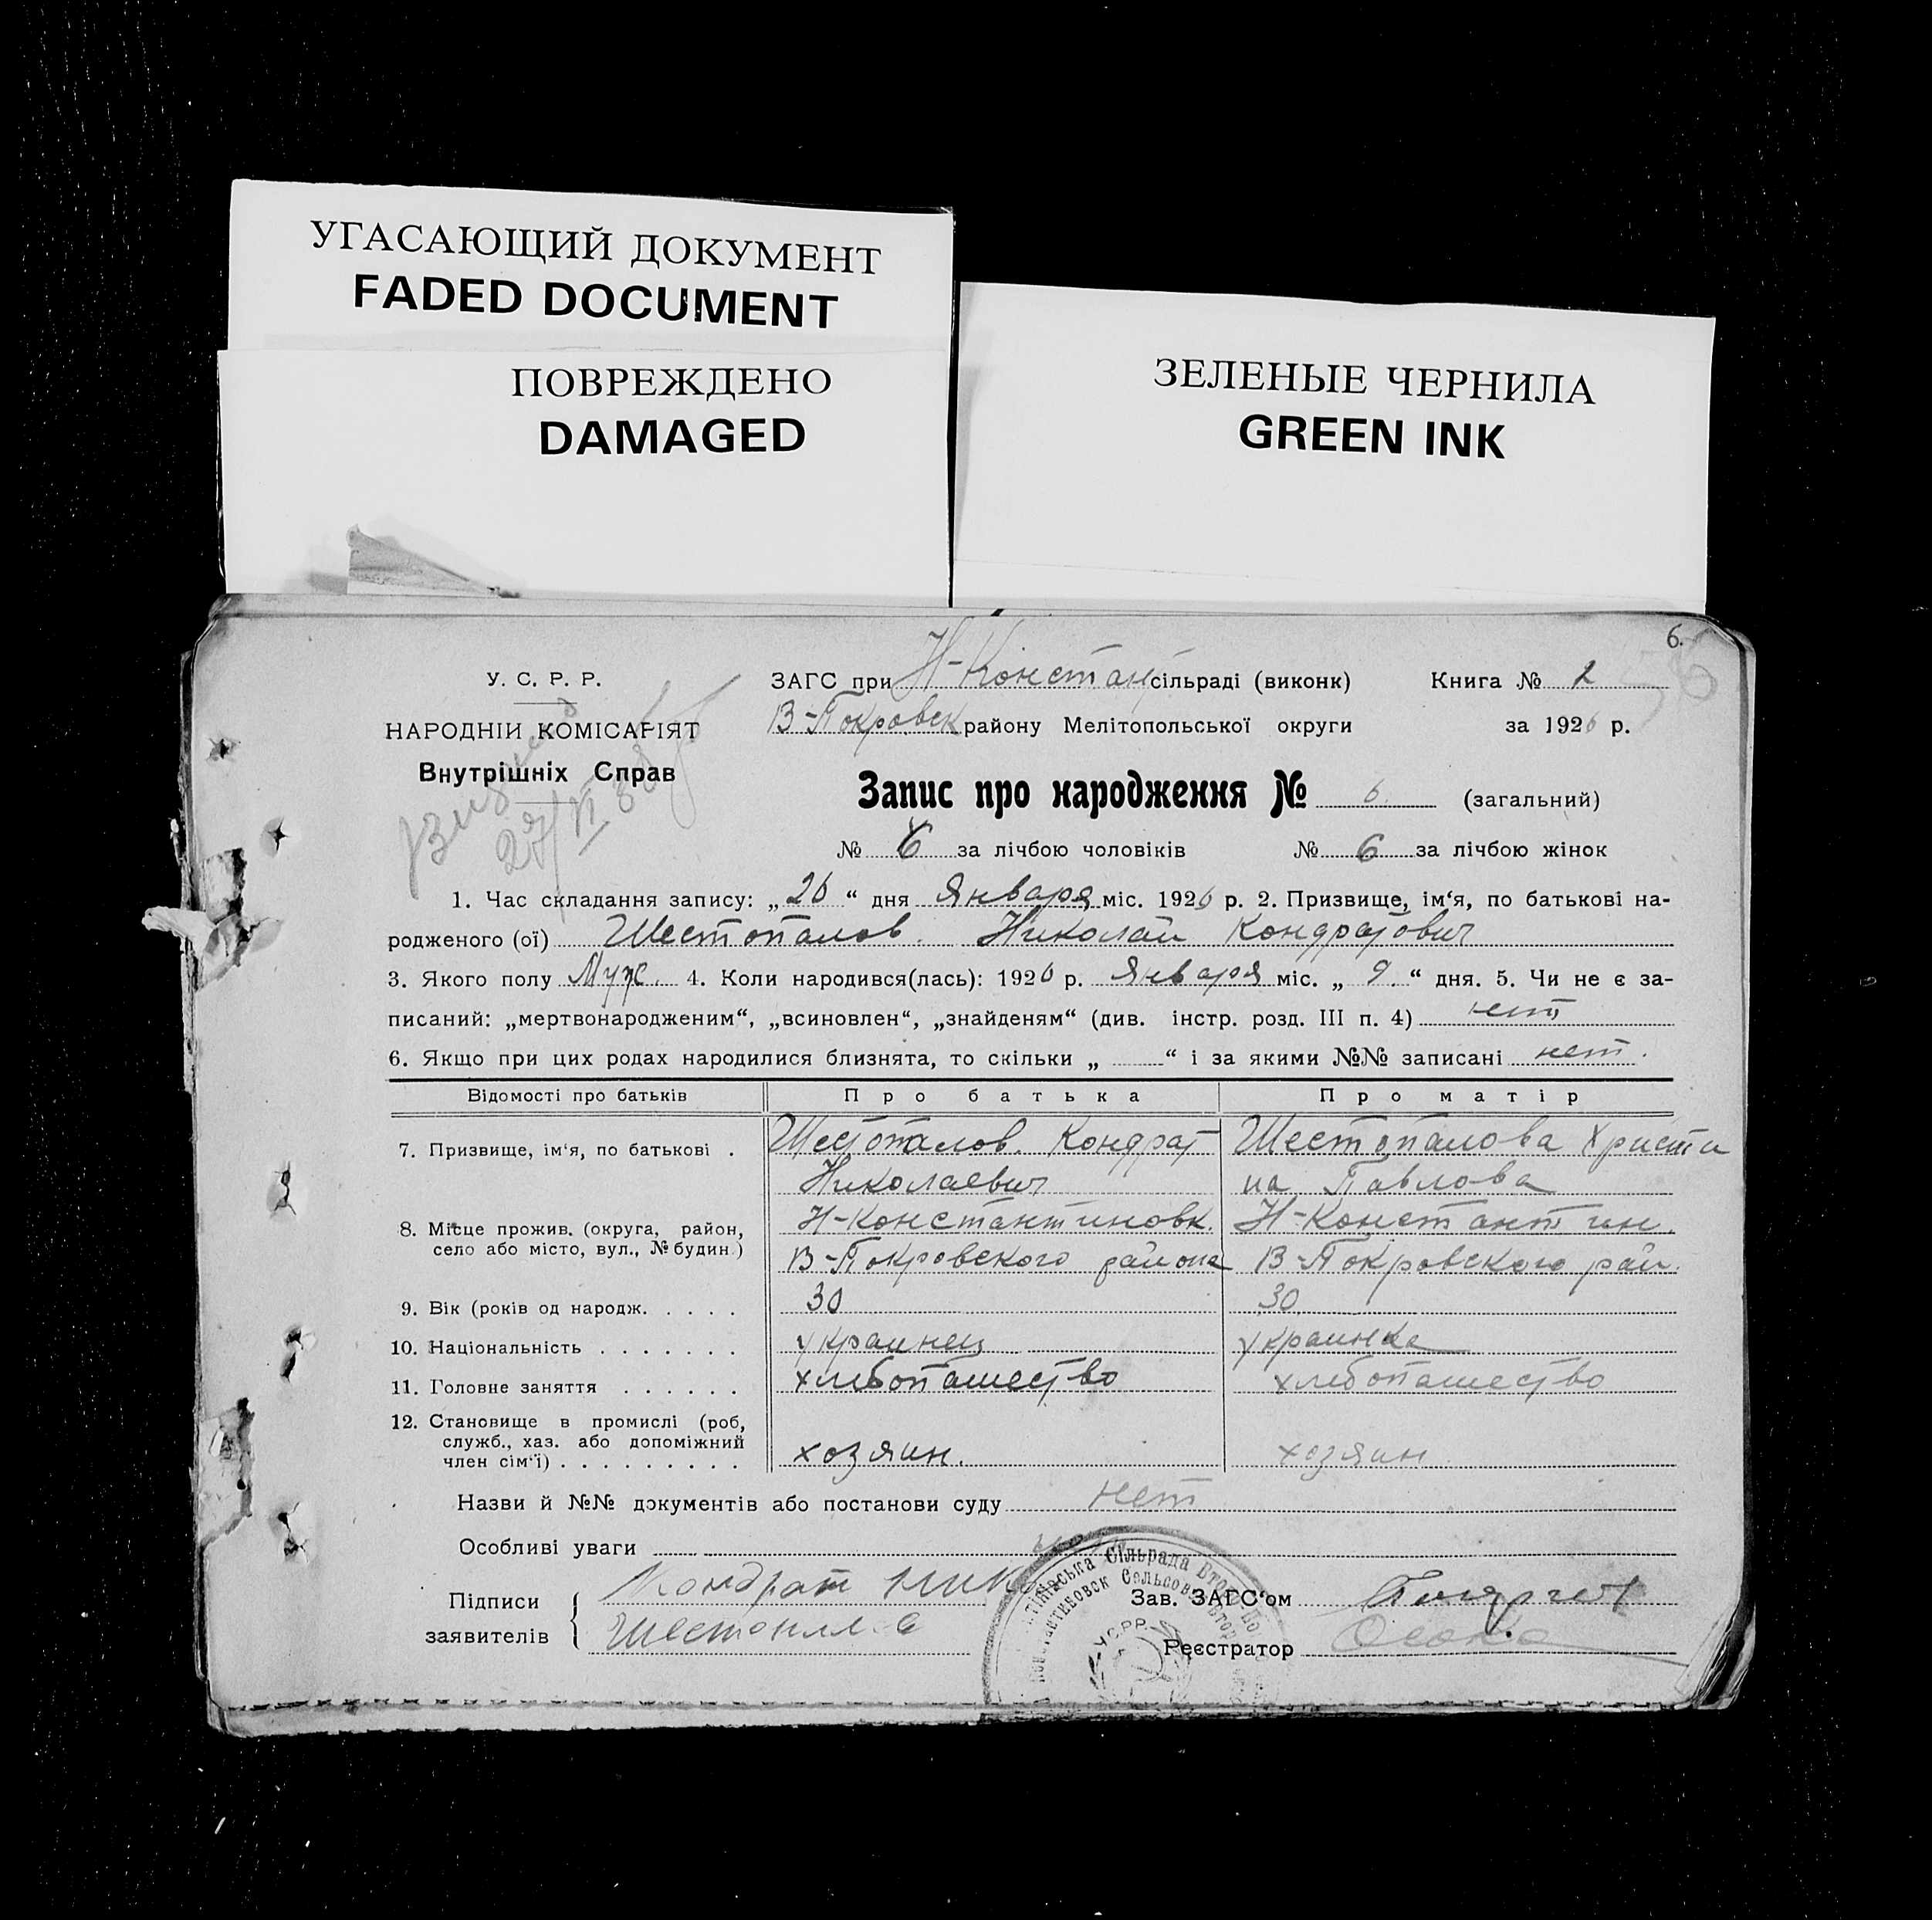 УГАСАЮЩИЙ ДОКУМЕНТ
FADED DOCUMENT
ПОВРЕЖДЕНО
DAMAGED
ЗЕЛЕНЫЕ ЧЕРНИЛА
GREEN INK
6.
56
У. С. Р. Р.
НАРОДНІЙ КОМІСАРІЯТ
Внутрішніх Справ
ЗАГС при Н-Констант сільраді (виконк) Книга № 2
В-Покровск району Мелітопольської округи за 1926 р.
Запис про народження № 6 (загальний)
№ 6 за лічбою чоловіків № 6 за лічбою жінок
1. Час складання запису: „26“ дня Января міс. 1926 р. 2. Призвище, ім‘я, по батькові на-
родженого (ої) Шестопалов. Николай Кондратович
3. Якого полу Муж. 4. Коли народився(лась): 1926 р. Января міс. „9.“ дня. 5. Чи не є за-
писаний: „мертвонародженим“, „всиновлен“, „знайденям“ (див. інстр. розд. III п. 4) нет
6. Якщо при цих родах народилися близнята, то скільки „ “ і за якими №№ записані нет.
Відомості про батьків Про батька Про матір
7. Призвище, ім‘я, по батькові . Шестопалов. Кондрат Шестопалова Христи
Николаевич на Павлова
8. Місце прожив. (округа, район, Н-Константиновк. Н-Константин.
село або місто, вул., № будин.) В-Покровского района В-Покровского рай.
9. Вік (років од народж. . . . . 30 30
10. Національність . . . . . . . украинец украинка
11. Головне заняття . . . . . . хлебопашество хлебопашество
12. Становище в промислі (роб,
служб., хаз. або допоміжний
член сім‘ї) . . . . . . . . . хозяин. хозяин
Назви й №№ документів або постанови суду нет
Особливі уваги
Підписи заявителів Кондрат Ник
Шестопал
Зав. ЗАГС‘ом
Реєстратор
Сільрада
Сельсов
УСРР